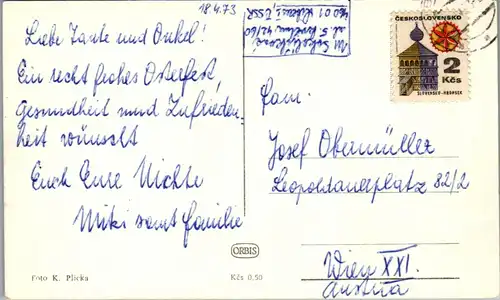 18.4.73
Liebe Tante und Onkel!
Ein recht frohes Osterfest,
Gesundheit und Zufrieden-
heit wünscht
Euch Eure Nichte
Miki samt Familie
Foto K. Plicka
ORBIS
Kčs 0,50
460 01 Liberec I, ČSSR
ČESKOSLOVENSKO
2
Kčs
SLOVENSKO-HRONSEK
Fam.
Josef Obermüller
Leopoldauerplatz 82/2
Wien XXI.
Austria